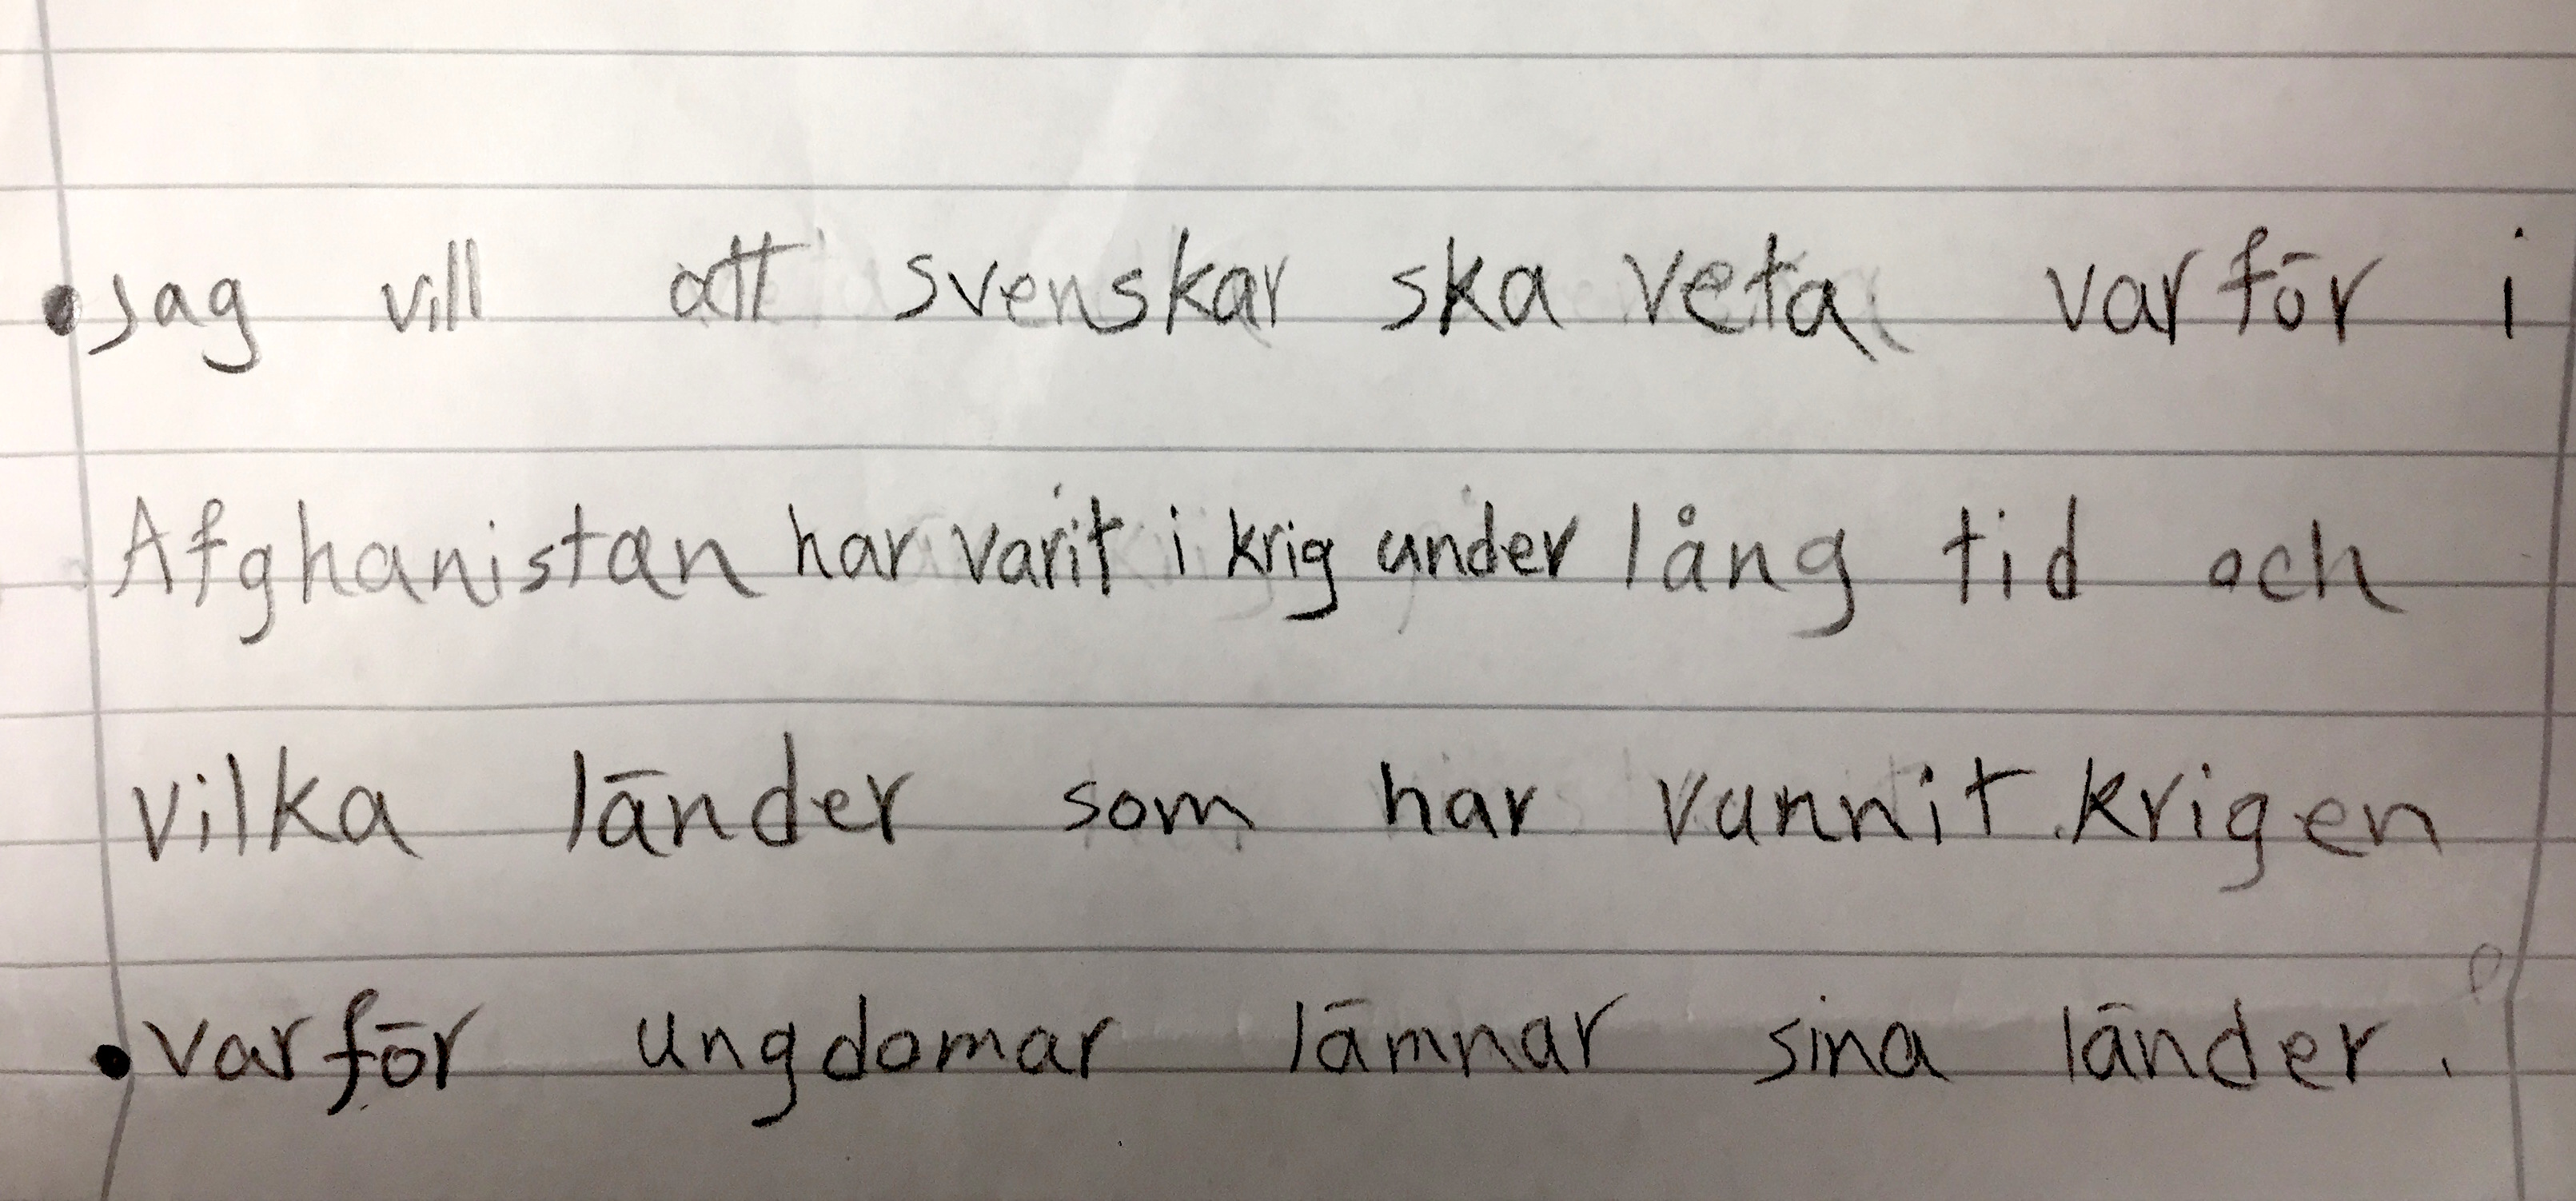 • Jag vill att svenskar ska veta varför i
Afghanistan har varit i krig under lång tid och
vilka länder som har vunnit krigen
• varför ungdomar lämnar sina länder.